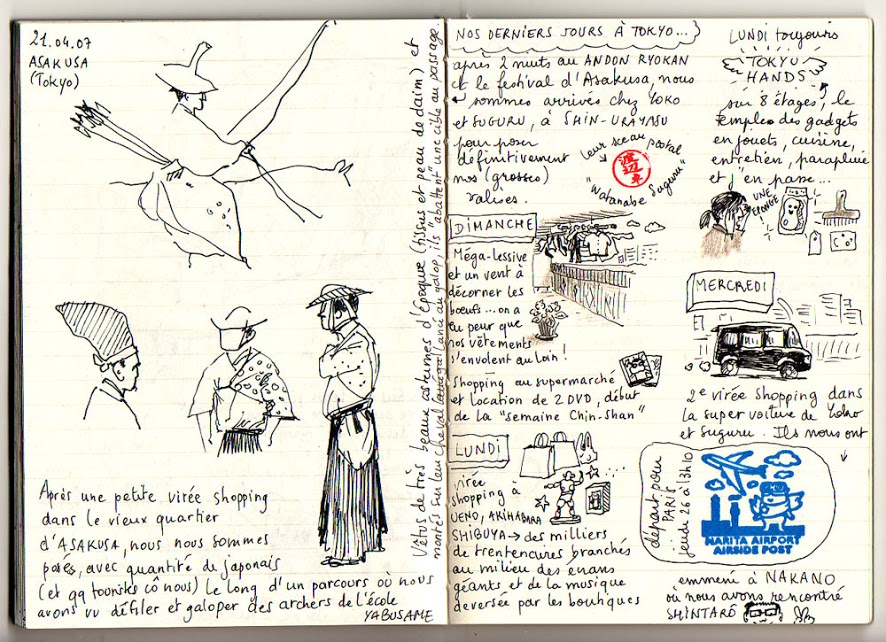 21.04.07
ASAKUSA
(Tokyo)
Après une petite virée shopping
dans le vieux quartier
d'ASAKUSA, nous nous sommes
posés, avec quantité de japonais
(et qq touristes cô nous) le long d'un parcours où nous
avons vu défiler et galoper des archers de l'école
YABUSAME
Vêtus de très beaux costumes d'époque (tissus et peau de daim) et
montés sur leur cheval lancé au galop, ils "abattent" une cible au passage.
NOS DERNIERS JOURS À TOKYO...
après 2 nuits au ANDON RYOKAN
et le festival d'Asakusa, nous
sommes arrivés chez YOKO
et SUGURU, à SHIN-URAYASU
pour poser
définitivement
nos (grosses)
valises.
leur sceau postal
渡辺卓
"Watanabe Suguru"
DIMANCHE
Méga-lessive
et un vent à
décorner les
bœufs... on a
eu peur que
nos vêtements
s'envolent au loin !
Shopping au supermarché
et location de 2 DVD, début
de la "semaine Chin-Shan"
LUNDI
virée
shopping à
UENO, AKIHABARA
SHIBUYA → des milliers
de trentenaires branchés
au milieu des écrans
géants et de la musique
deversée par les boutiques
LUNDI toujours
TOKYU
HANDS
sur 8 étages, le
temple des gadgets
en jouets, cuisine,
entretien, parapluie
et j'en passe...
UNE
ÉPONGE
MERCREDI
2e virée shopping dans
la super voiture de Yoko
et Suguru. Ils nous ont
départ pour
PARIS
jeudi 26 à 13h10
NARITA AIRPORT
AIRSIDE POST
emmené à NAKANO
où nous avons rencontré
SHINTARÔ